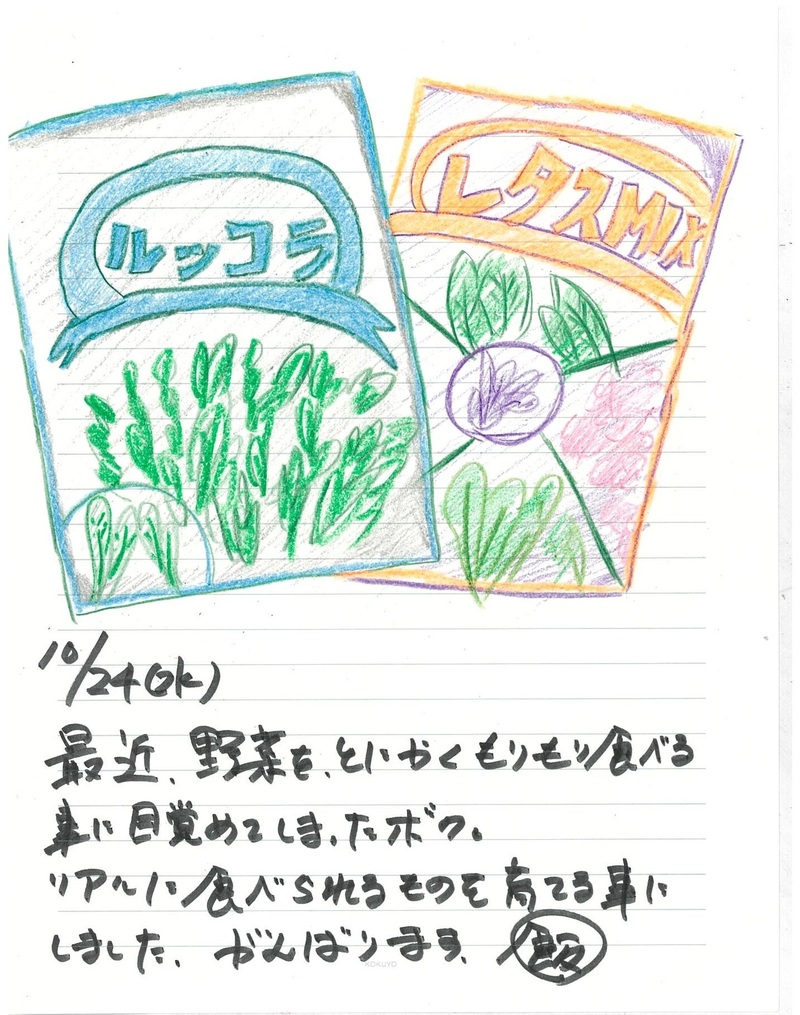 ルッコラ
レタスMIX
10/24(水)
最近、野菜を、とにかくもりもり食べる
事に目覚めてしまったボク。
リアルに食べられるものを育てる事に
しました。がんばります。 飯
KOKUYO